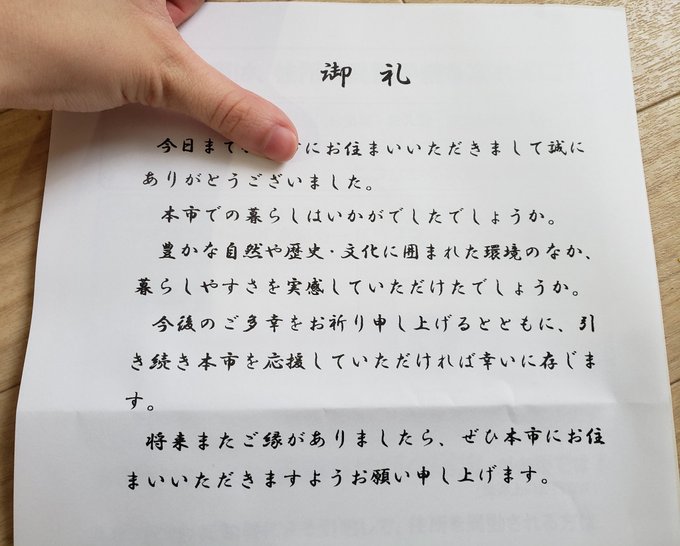 御礼
今日まで にお住まいいただきまして誠に
ありがとうございました。
本市での暮らしはいかがでしたでしょうか。
豊かな自然や歴史・文化に囲まれた環境のなか、
暮らしやすさを実感していただけたでしょうか。
今後のご多幸をお祈り申し上げるとともに、引
き続き本市を応援していただければ幸いに存じま
す。
将来またご縁がありましたら、ぜひ本市にお住
まいいただきますようお願い申し上げます。